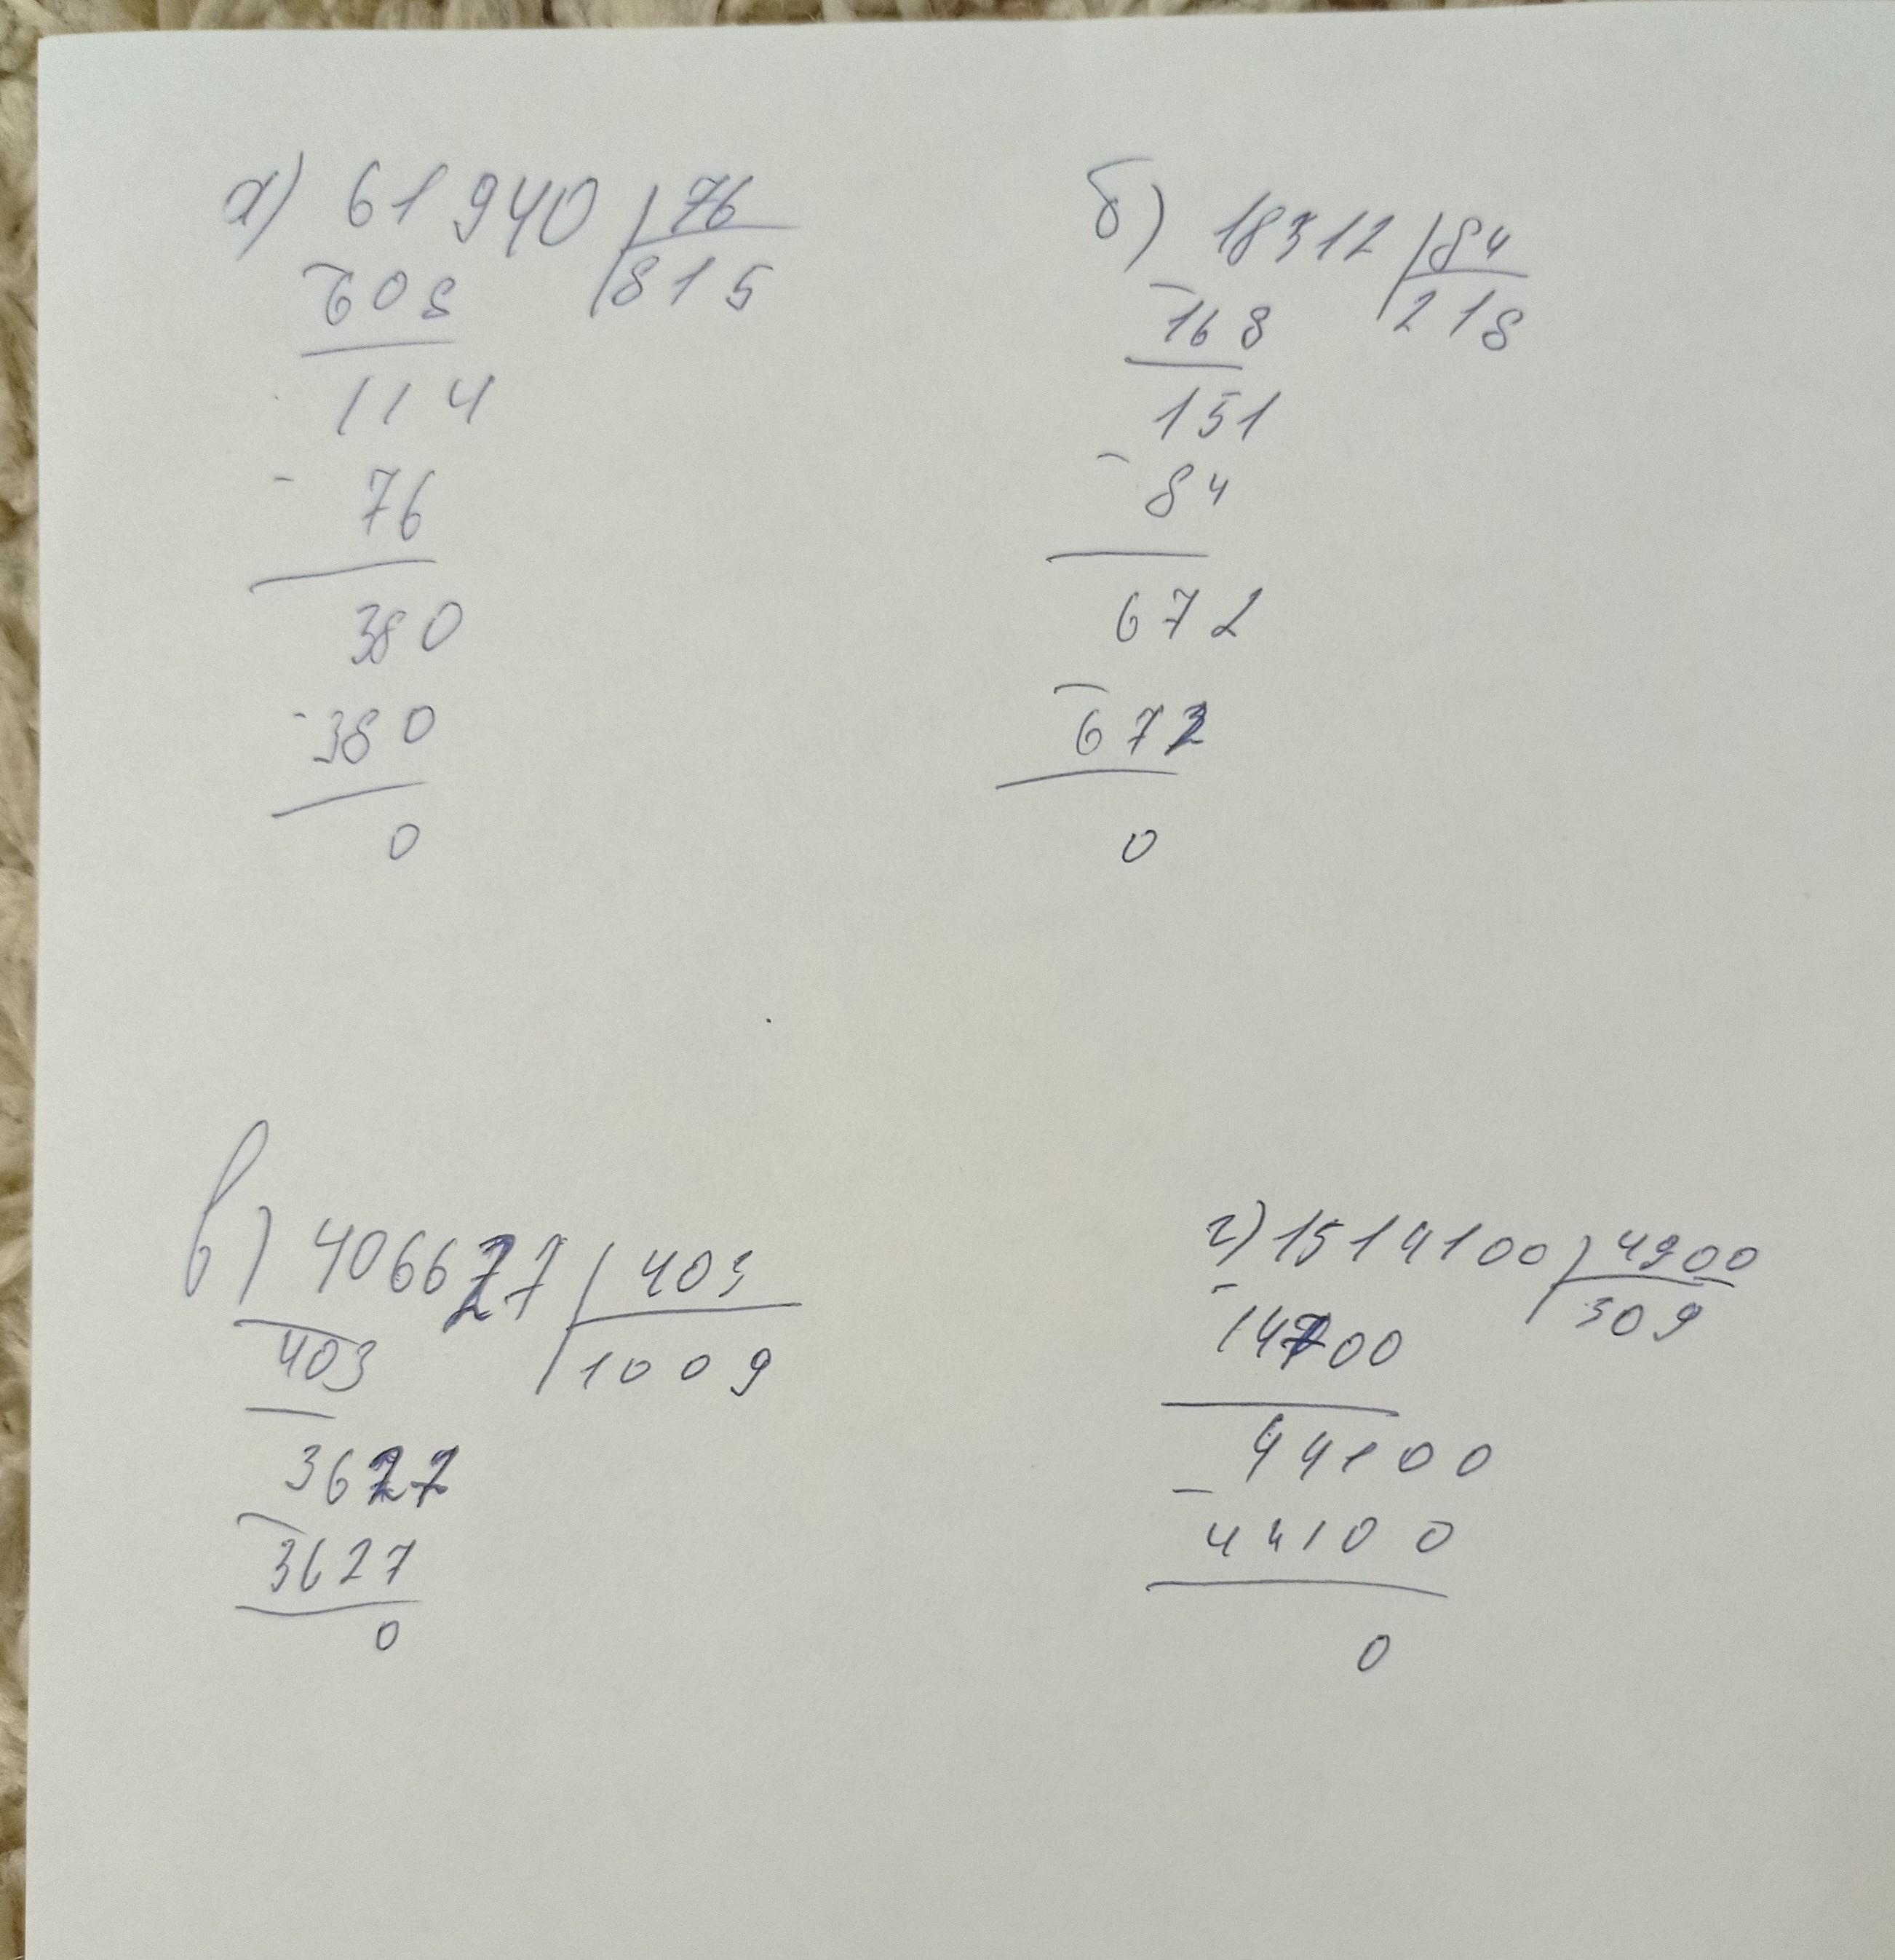 а) 61940 | 76
- 608 | 815
114
- 76
380
- 380
0
б) 18312 | 84
- 168 | 218
151
- 84
672
- 672
0
в) 406627 | 403
- 403 | 1009
3627
- 3627
0
г) 1514100 | 4900
- 14700 | 309
44100
- 44100
0